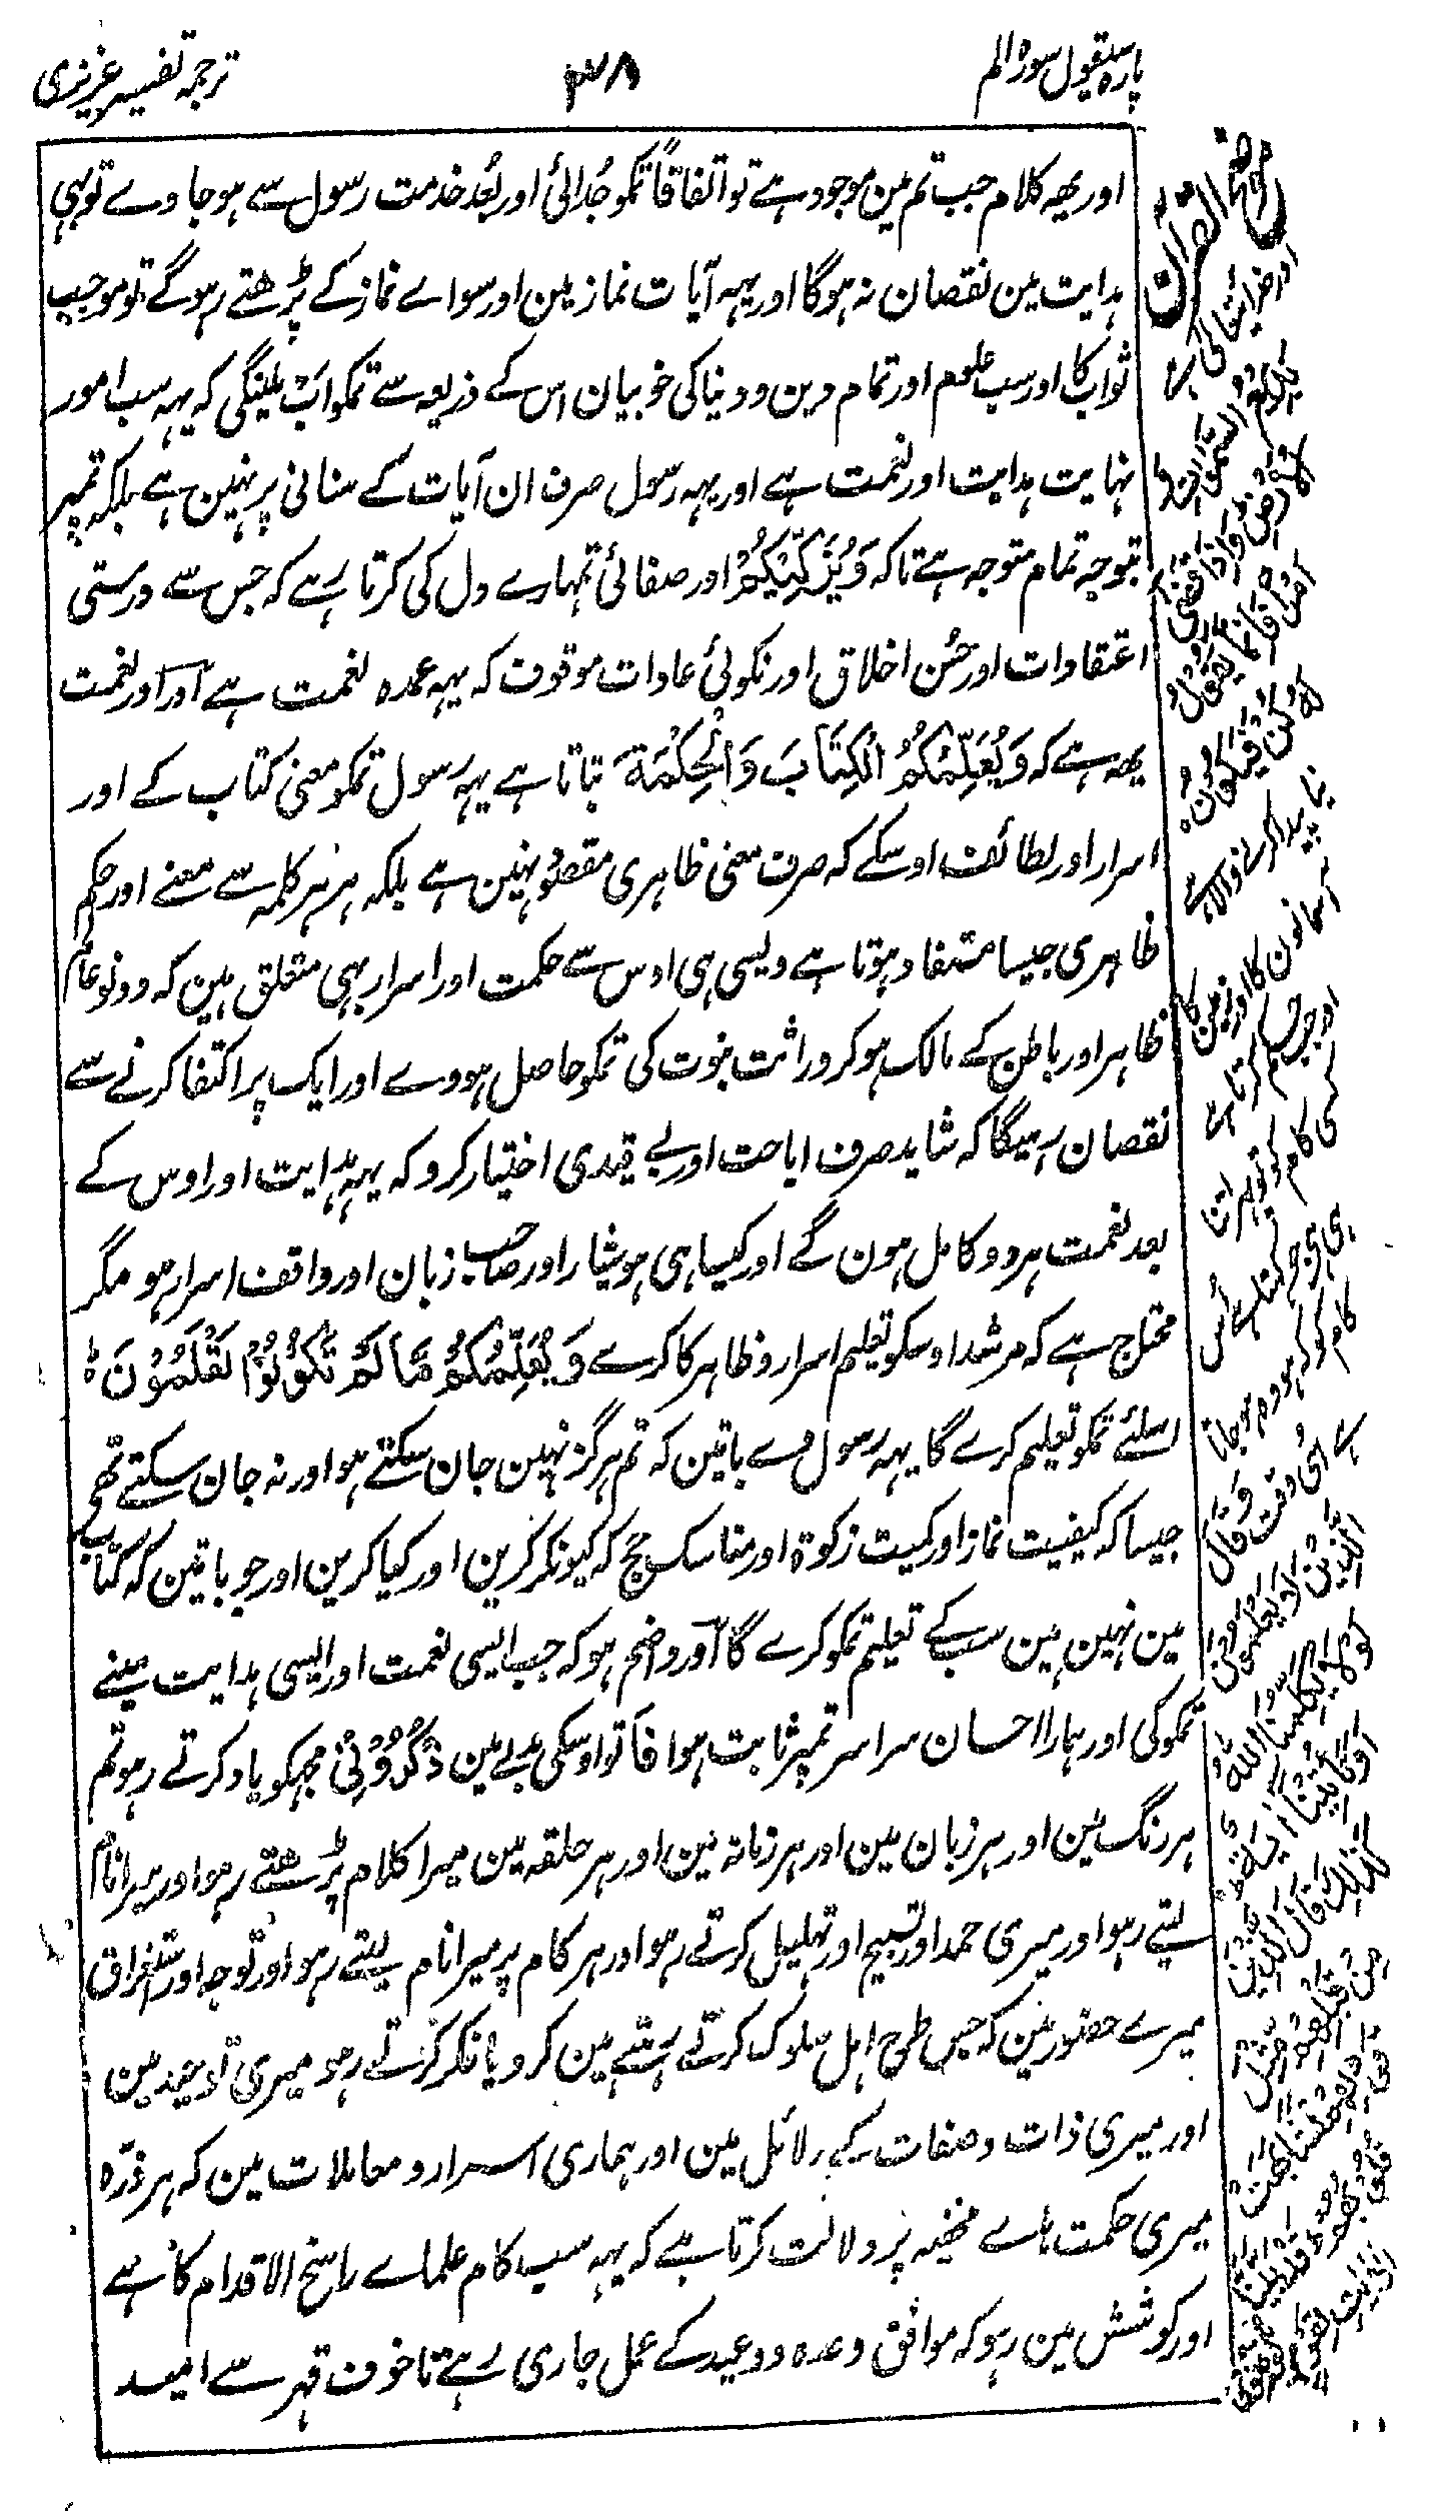 پارہ سیقول سورہ الم
۳۸
ترجمہ تفسیر عزیزی
اور یھہ کلام جب تم مین موجود ہے تو اتفاقاً تمکو جُدائی اور بُعد خدمت رسول سے ہو جاوے تو بہی
ہدایت مین نقصان نہ ہوگا اور یہہ آیات نماز مین اور سواے نماز کے پڑھتے رہوگے تو موجب
ثواب کا اور سب علوم اور تمام دین و دنیا کی خوبیان اس کے ذریعہ سے تمکو اَب ملینگی کہ یہہ سب امور
نہایت ہدایت اور نعمت ہے اور یہہ رسول صرف ان آیات کے سنانی پر نہین ہے بلکہ تمپر
بتوجہ تمام متوجہ ہے تاکہ وَيُزَكِّيْكُمْ اور صفائی تمہارے دل کی کرتا رہے کہ جس سے درستی
اعتقادات اور حسُن اخلاق اور نکوئی عادات موقوف کہ یہہ عمدہ نعمت ہے اور اور نعمت
یھہ ہے کہ وَيُعَلِّمُكُمُ الْكِتَابَ وَالْحِكْمَةَ بتاتا ہے یہہ رسول تمکو معنی کتاب کے اور
اسرار اور لطائف اوسکے کہ صرف معنی ظاہری مقصُود نہین ہے بلکہ ہر ہر کلمہ سے معنے اور حکم
ظاہری جیسا مستفاد ہوتا ہے ویسی ہی اوس سے حکمت اور اسرار بہی متعلق ہین کہ دونو عالم
ظاہر اور باطن کے مالک ہوکر وراثت نبوت کی تمکو حاصل ہووے اور ایک پر اکتفا کرنے سے
نقصان رہیگا کہ شاید صرف اباحت اور بے قیدی اختیار کرو کہ یہہ ہدایت اور اوس کے
بعد نعمت ہر دو کامل ہون گے اور کیسا ہی ہوشیار اور صاحب زبان اور واقف اسرار ہو مگر
محتاج ہے کہ مرشد اوسکو تعلیم اسرار و ظاہر کا کرے وَيُعَلِّمُكُمْ مَّا لَمْ تَكُوْنُوْا تَعْلَمُوْنَ ؕ
اسلئے تمکو تعلیم کرے گا یہہ رسول وے باتین کہ تم ہرگز نہین جان سکتے ہو اور نہ جان سکتے تھی
جیسا کہ کیفیت نماز اور کمیت زکوۃ اور مناسک حج کہ کیونکر کرین اور کیا کرین اور جو باتین کہ کتاب
مین نہین ہین سب کے تعلیم تمکو کرے گا اور واضح ہو کہ جب ایسی نعمت اور ایسی ہدایت مینے
تمکو کی اور ہمارا احسان سراسر تمپر ثابت ہوا فَا تو اوسکی بدلے مین ذْكُرُوْنِیْ مجہکو یاد کرتے رہو تم
ہر رنگ مین اور ہر زبان مین اور ہر زمانہ مین اور ہر حلقہ مین میرا کلام پڑھتے رہو اور میرا نام
لیتے رہو اور میری حمد اور تسبیح اور تہلیل کرتے رہو اور ہر کام پر میرا نام لیتے رہو اور توجہ اور استغراق
میرے حضور مین کہ جس طرح اہل سلوک کرتے رہتے ہین کرو یا فکر کرتے رہو میری توحید مین
اور میری ذات و صفات کے دلائل مین اور ہماری اسرار و معاملات مین کہ ہر ذرّہ
میری حکمت ہاے مخفیہ پر دلالت کرتا ہے کہ یہہ سب کام علماے راسخ الاقدام کا ہے
اور کوشش مین رہو کہ موافق وعدہ و وعید کے عمل جاری رہے تا خوف قہر سے امید
موضح القرآن
السَّمٰوٰتِ وَ
الْاَرْضِ وَاِذَا قَضٰى
اَمْرًا فَاِنَّمَا يَقُوْلُ
لَهُ كُنْ فَيَكُوْنُ
نیا پیدا کرنے والا ہے
آسمانون کا اور زمین کا
اور جب حکم کرتا ہے
کسی کام کو تو
یہی کہتا ہے اُس
کام کو کہ ہو وہ ہو جاتا
ہے اُسی وقت وَقَالَ
الَّذِيْنَ لَا يَعْلَمُوْنَ
لَوْلَا يُكَلِّمُنَا اللّٰهُ
اَوْ تَاْتِيْنَا اٰيَةٌ
كَذٰلِكَ قَالَ الَّذِيْنَ
مِنْ قَبْلِهِمْ مِّثْلَ
قَوْلِهِمْ تَشَابَهَتْ
قُلُوْبُهُمْ قَدْ بَيَّنَّا